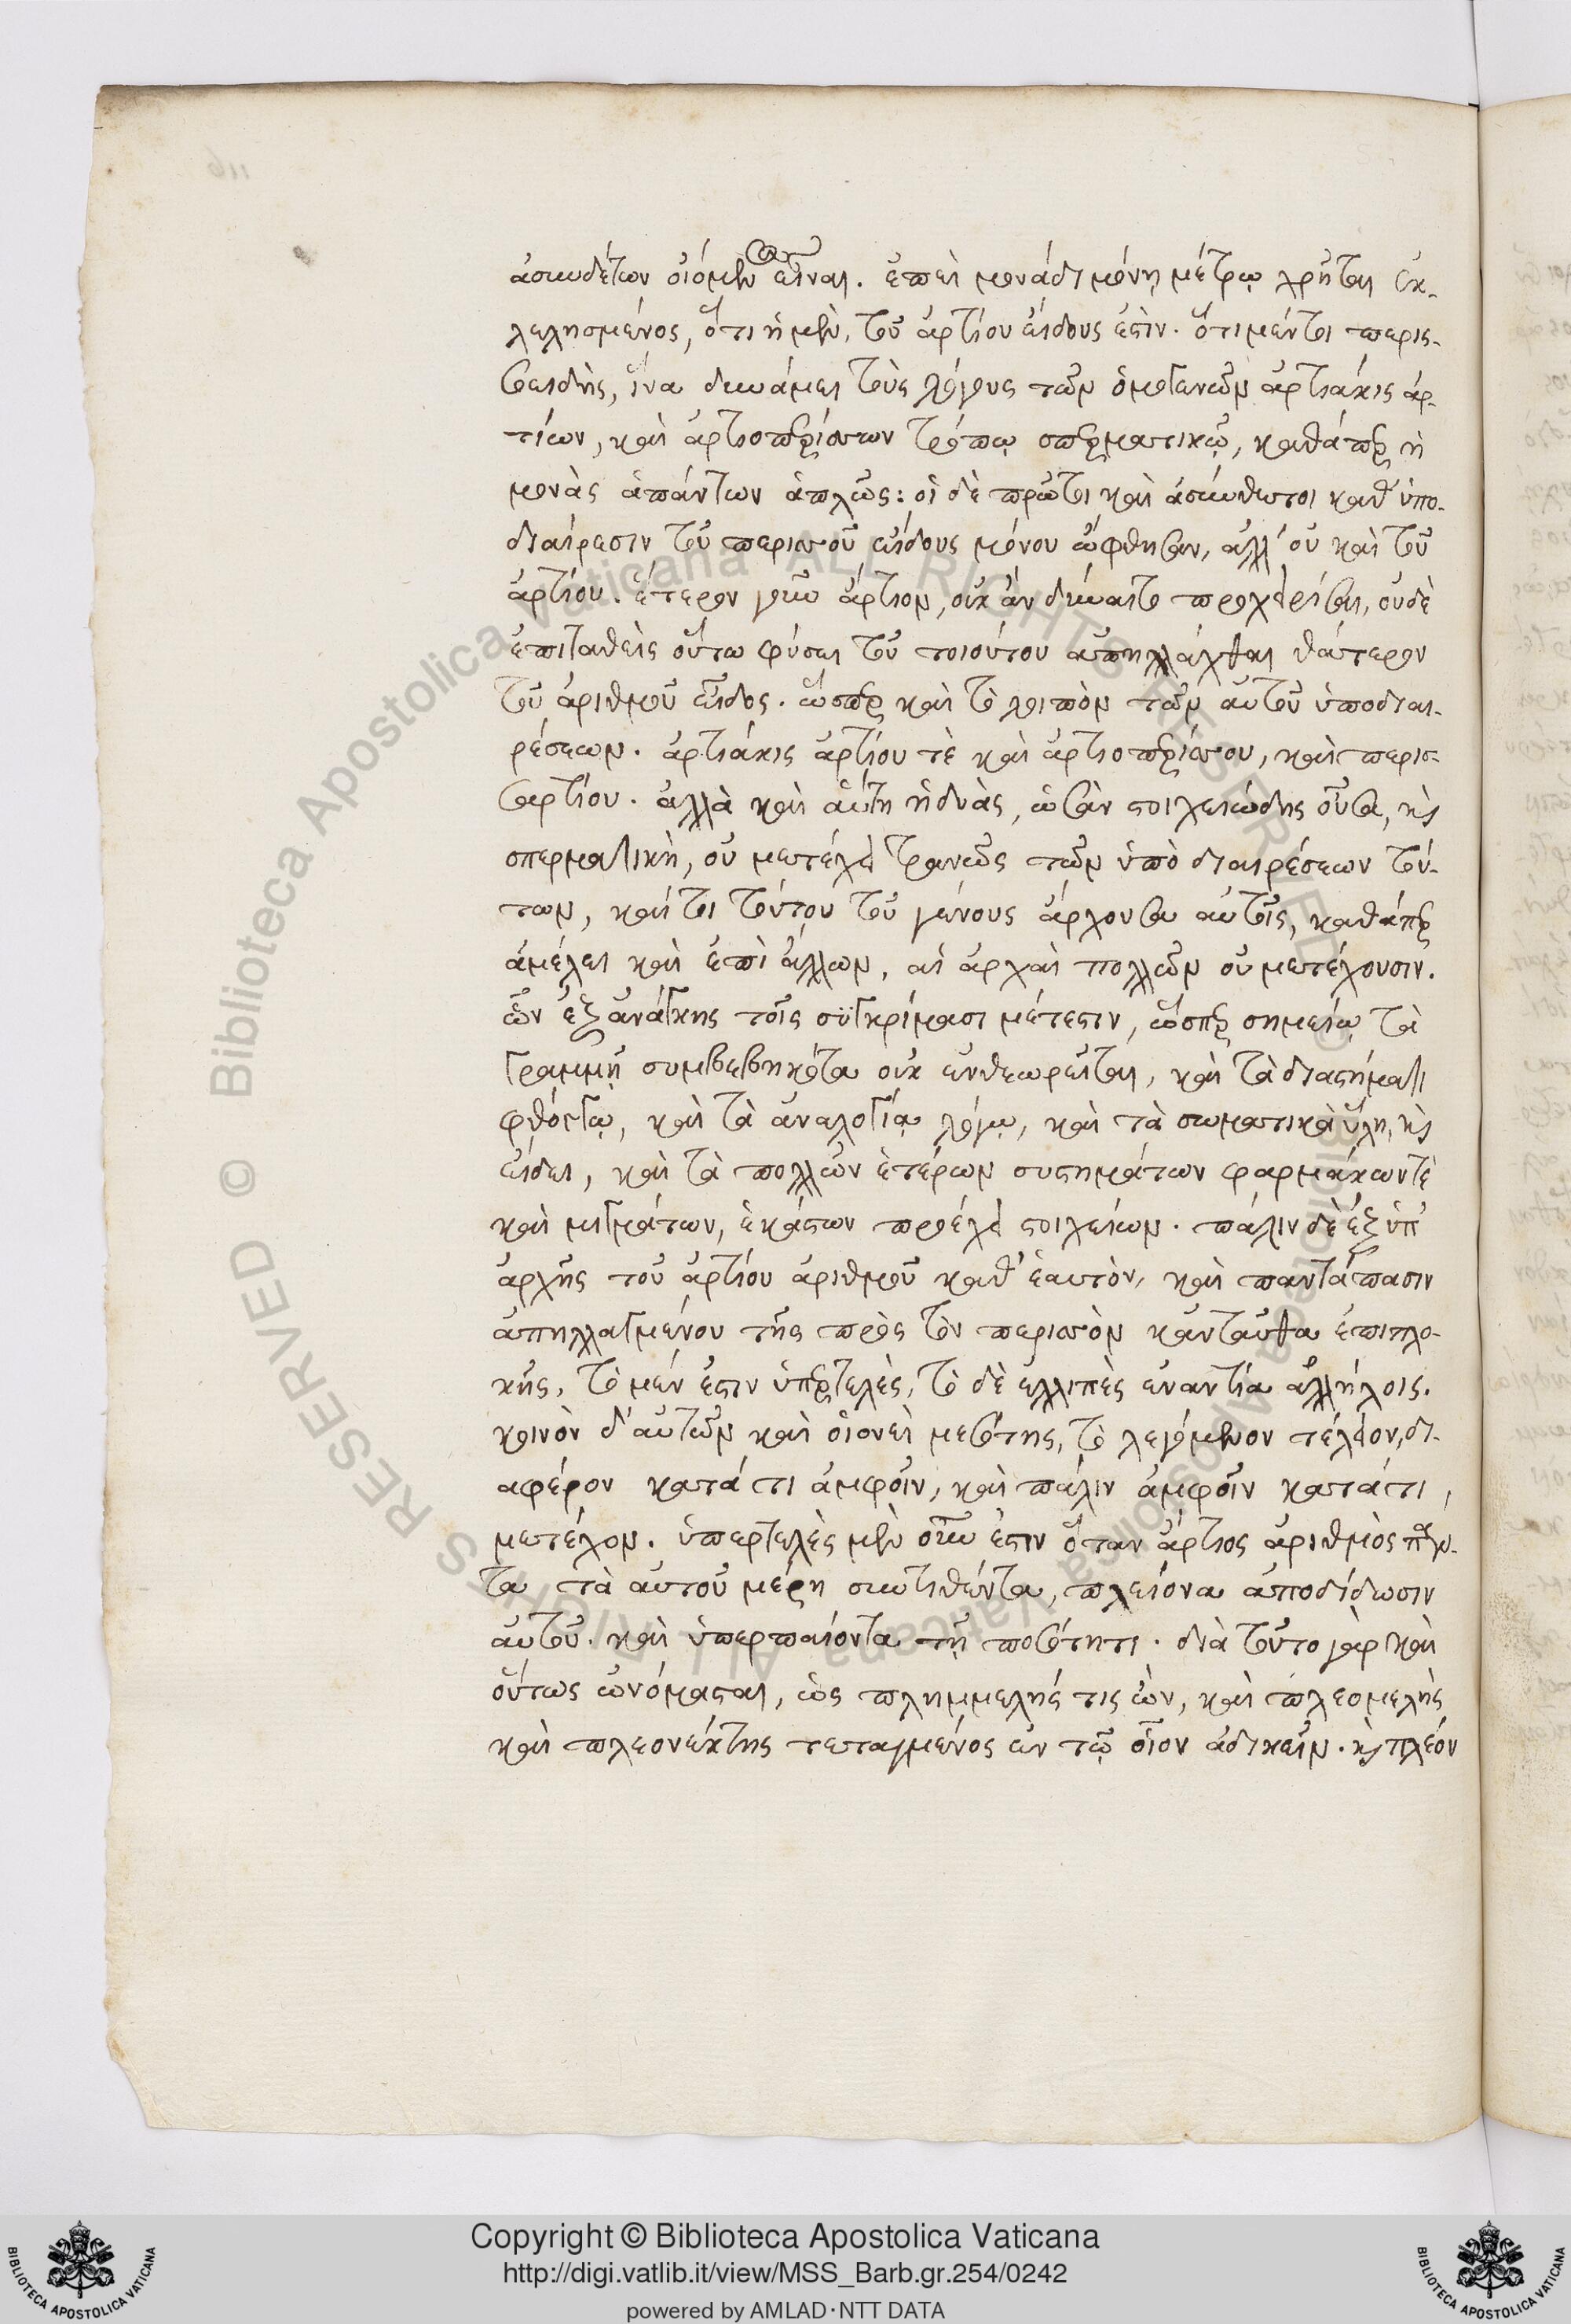 ἀσυνθέτων οἰόμενος εἶναι. ἐπεὶ μονάδι μόνῃ μέτρῳ χρῆται ἐκ-
λελησμένος, ὅτι ἡ μὲν, τοῦ ἀρτίου εἴδους ἐστίν. ὅτι μέντοι περισ-
σοειδὴς, ἵνα δυνάμει τοὺς λόγους τῶν ὁμογενῶν ἀρτιάκις ἀρ-
τίων, καὶ ἀρτιοπερίσσων τρόπῳ σπερματικῷ, καθάπερ ἡ
μονὰς ἁπάντων ἁπλῶς: οἱ δὲ πρῶτοι καὶ ἀσύνθετοι καθ' ὑπο-
διαίρεσιν τοῦ περισσοῦ εἴδους μόνου ὤφθησαν, ἀλλ' οὐ καὶ τοῦ
ἀρτίου. ἕτερον γοῦν ἄρτιον, οὐκ ἂν δύναιτο προχειρίσαι, οὐδὲ
ἐπιταθεὶς οὕτω φύσει τοῦ τοιούτου ἀπηλλάχθαι θάτερον
τοῦ ἀριθμοῦ εἶδος. ὥσπερ καὶ τὸ λοιπὸν τῶν αὐτοῦ ὑποδιαι-
ρέσεων. ἀρτιάκις ἀρτίου τὲ καὶ ἀρτιοπερίσσου, καὶ περισ-
σαρτίου. ἀλλὰ καὶ αὕτη ἡ δυὰς, ὡσὰν στοιχειώδης οὖσα, καὶ
σπερματικὴ, οὐ μετέχει τρανῶς τῶν ὑπὸ διαιρέσεων τού-
των, καίτοι τούτου τοῦ γένους ἄρχουσα αὐτοῖς, καθάπερ
ἀμέλει καὶ ἐπὶ ἄλλων, αἱ ἀρχαὶ πολλῶν οὐ μετέχουσιν.
ὧν ἐξ ἀνάγκης τοῖς συγκρίμασι μέτεστιν, ὥσπερ σημείῳ τὰ
γραμμῇ συμβεβηκότα οὐκ ἐνθεωρεῖται, καὶ τὰ διαστήματι
φθόγγῳ, καὶ τὰ ἀναλογίᾳ λόγῳ, καὶ τὰ σωματικὰ ὕλῃ, καὶ
εἴδει, καὶ τὰ πολλῶν ἑτέρων συστημάτων φαρμάκων τὲ
καὶ μιγμάτων, ἑκάστων προέχει στοιχείων. πάλιν δὲ ἐξ ὑπ'
ἀρχῆς τοῦ ἀρτίου ἀριθμοῦ καθ' ἑαυτὸν, καὶ παντάπασιν
ἀπηλλαγμένου τῆς πρὸς τὸν περισσὸν κἀνταῦθα ἐπιπλο-
κῆς, τὸ μέν ἐστιν ὑπερτελὲς, τὸ δὲ ἐλλιπὲς ἐναντία ἀλλήλοις.
κοινὸν δ' αὐτῶν καὶ οἱονεὶ μεσότης, τὸ λεγόμενον τέλειον, δι-
αφέρον κατά τι ἀμφοῖν, καὶ πάλιν ἀμφοῖν κατά τι,
μετέχον. ὑπερτελὲς μὲν οὖν ἐστιν ὅταν ἄρτιος ἀριθμὸς πάν-
τα τὰ αὑτοῦ μέρη συντιθέντα, πλείονα ἀποδίδωσιν
αὐτοῦ. καὶ ὑπερπαίοντα τῇ ποσότητι. διὰ τοῦτο γὰρ καὶ
οὕτως ὠνόμασται, ὡς πλημμελής τις ὢν, καὶ πλεομελὴς
καὶ πλεονέκτης τεταγμένος ἐν τῷ οἷον ἀδικεῖν. καὶ πλέον
Copyright © Biblioteca Apostolica Vaticana
http://digi.vatlib.it/view/MSS_Barb.gr.254/0242
powered by AMLAD·NTT DATA
BIBLIOTECA APOSTOLICA VATICANA
BIBLIOTECA APOSTOLICA VATICANA
© Biblioteca Apostolica Vaticana ALL RIGHTS RESERVED
© Biblioteca Apostolica Vaticana ALL RIGHTS RESERVED